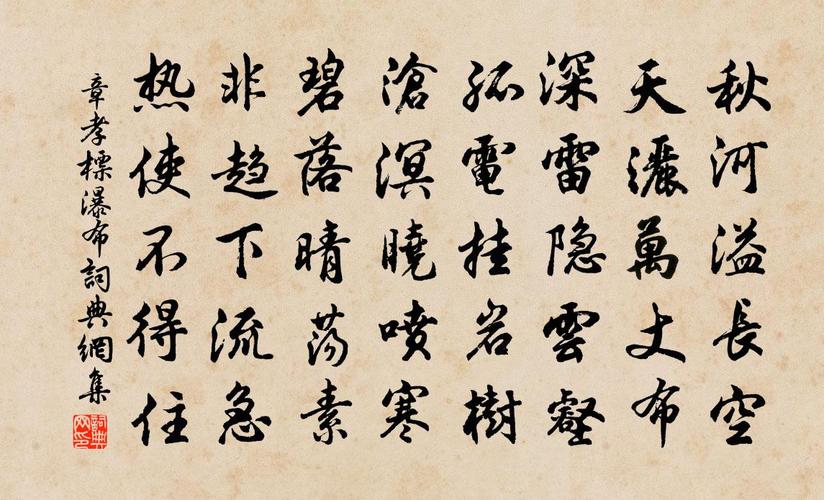 秋河溢長空
天灑萬丈布
深雷隐雲壑
孤電挂岩樹
滄溟曉噴寒
碧落晴荡素
非趋下流急
热使不得住
章孝標瀑布詞典網集